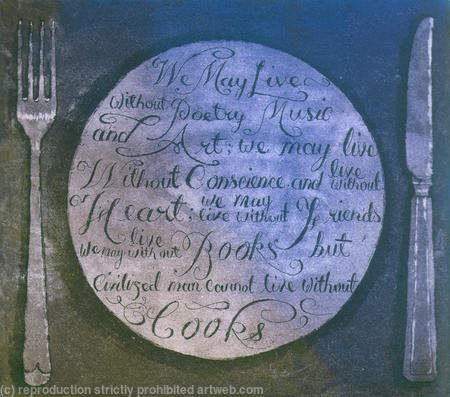 We May Live
without Poetry Music
and Art; we may live
Without Conscience and live without
Heart; we may live without Friends
We may live without Books but
Civilized man cannot live without
Cooks
(c) reproduction strictly prohibited artweb.com